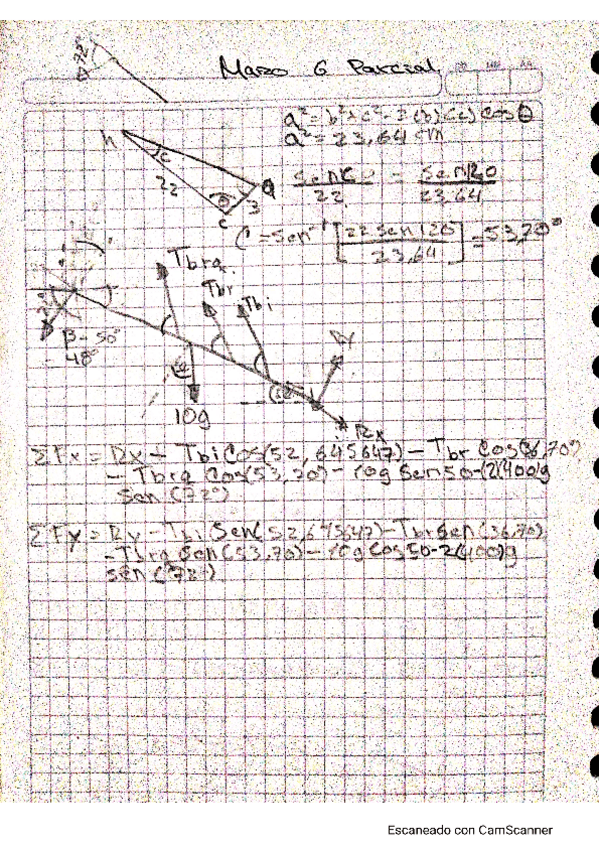 72°
Marzo 6 Parcial
a² = b² + c² - 2(b)(c) cos θ
a² = 23,64 cm
h
c
22
θ
3
c
Sen C / 22 = Sen 120 / 23,64
C = Sen⁻¹ [22 sen 120 / 23,64] = 53,70°
Tbra
Tbr
Tbi
Ry
β = 50°
48°
10g
Rx
ΣFx = Rx - Tbi Cos(52,645647) - Tbr Cos(36,70)
- Tbra Cos(53,70) - 10g Sen 50 - (2)(400)g
Sen (72°)
ΣFy = Ry - Tbi Sen(52,645647) - Tbr sen(36,70)
- Tbra Sen(53,70) - 10g Cos 50 - 2(400)g
sen (72°)
Escaneado con CamScanner